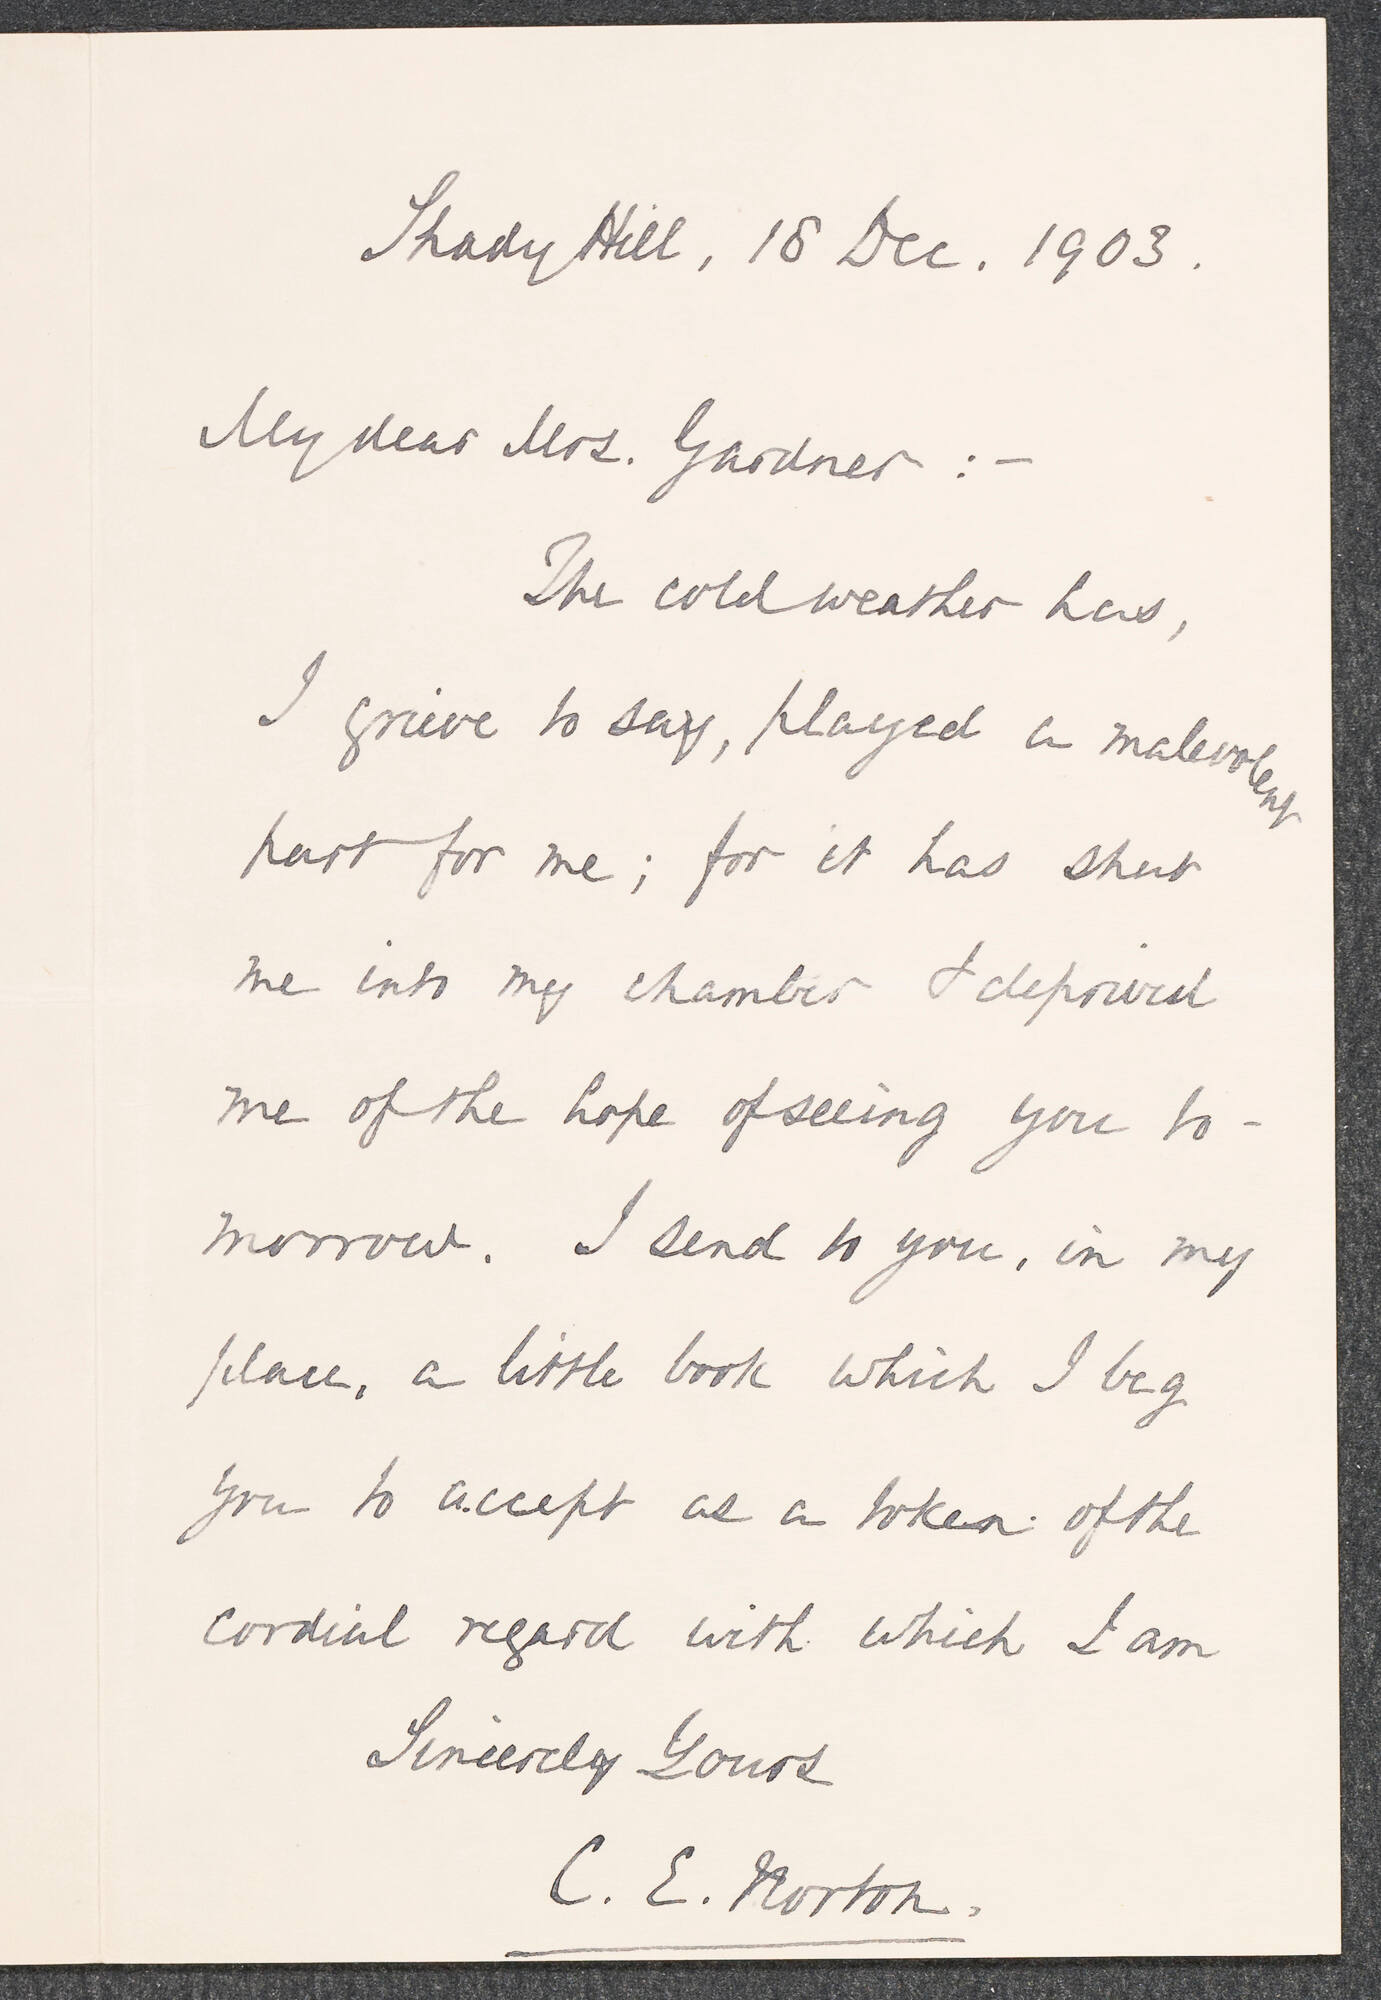 Shady Hill, 18 Dec. 1903.
My dear Mrs. Gardner :-
The cold weather has,
I grieve to say, played a malevolent
part for me; for it has shut
me into my chamber & deprived
me of the hope of seeing you to-
morrow. I send to you, in my
place, a little book which I beg
you to accept as a token of the
cordial regard with which I am
Sincerely Yours
C. E. Norton.